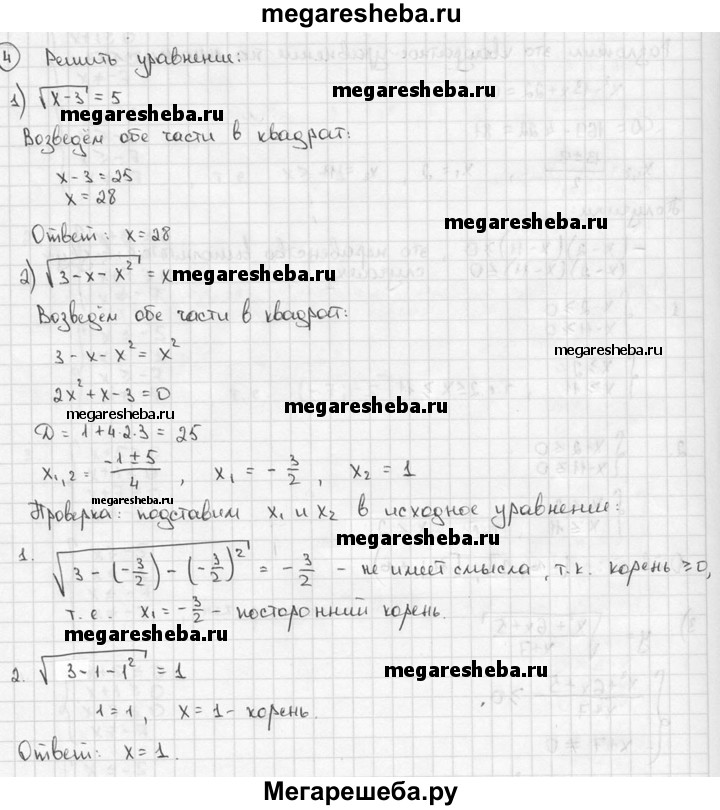 megaresheba.ru
4 Решить уравнение:
1) √(x-3) = 5
megaresheba.ru
megaresheba.ru
Возведём обе части в квадрат:
x-3 = 25
x = 28
megaresheba.ru
Ответ: x = 28
2) √(3-x-x²) = x
megaresheba.ru
Возведём обе части в квадрат:
3-x-x² = x²
megaresheba.ru
2x²+x-3 = 0
megaresheba.ru
megaresheba.ru
D = 1+4·2·3 = 25
x₁,₂ = (-1±5)/4, x₁ = -3/2, x₂ = 1
megaresheba.ru
Проверка: подставим x₁ и x₂ в исходное уравнение:
megaresheba.ru
1. √(3-(-3/2)-(-3/2)²) = -3/2 - не имеет смысла, т.к. корень ≥0,
т.е. x₁ = -3/2 - посторонний корень.
megaresheba.ru
2. √(3-1-1²) = 1
megaresheba.ru
1=1, x=1 - корень.
Ответ: x = 1.
Мегарешеба.ру